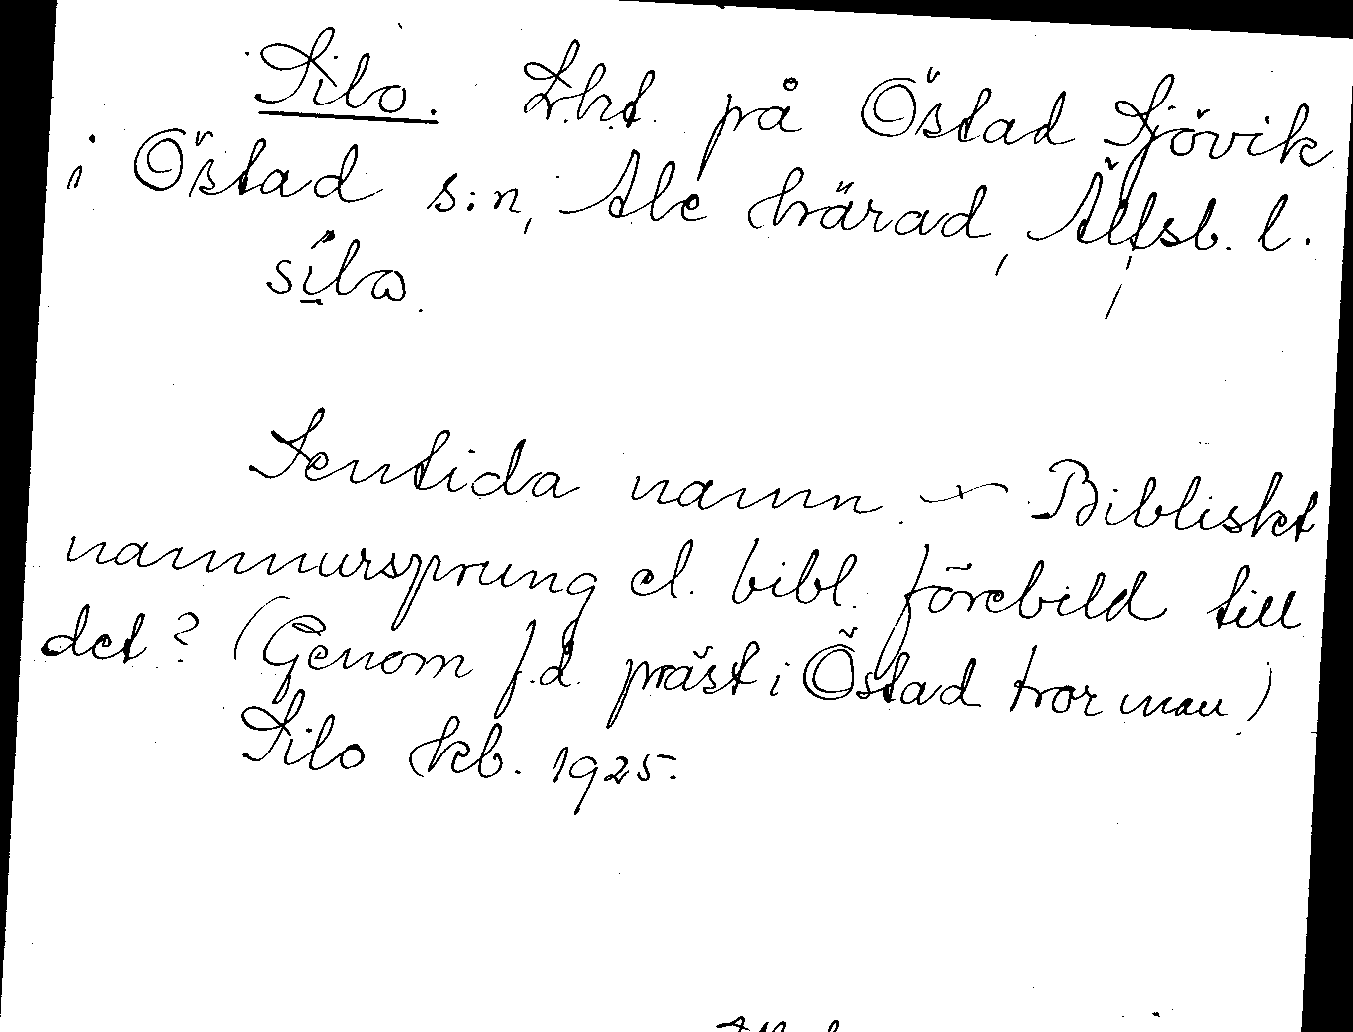 Silo. Lht. på Östad Sjövik
i Östad s:n, Ale härad, Älfsb. l.
silω.
Sentida namn. — Bibliskt
namnursprung el. bibl. förebild till
det? (Genom f.d. präst i Östad tror man)
Silo kb. 1925.